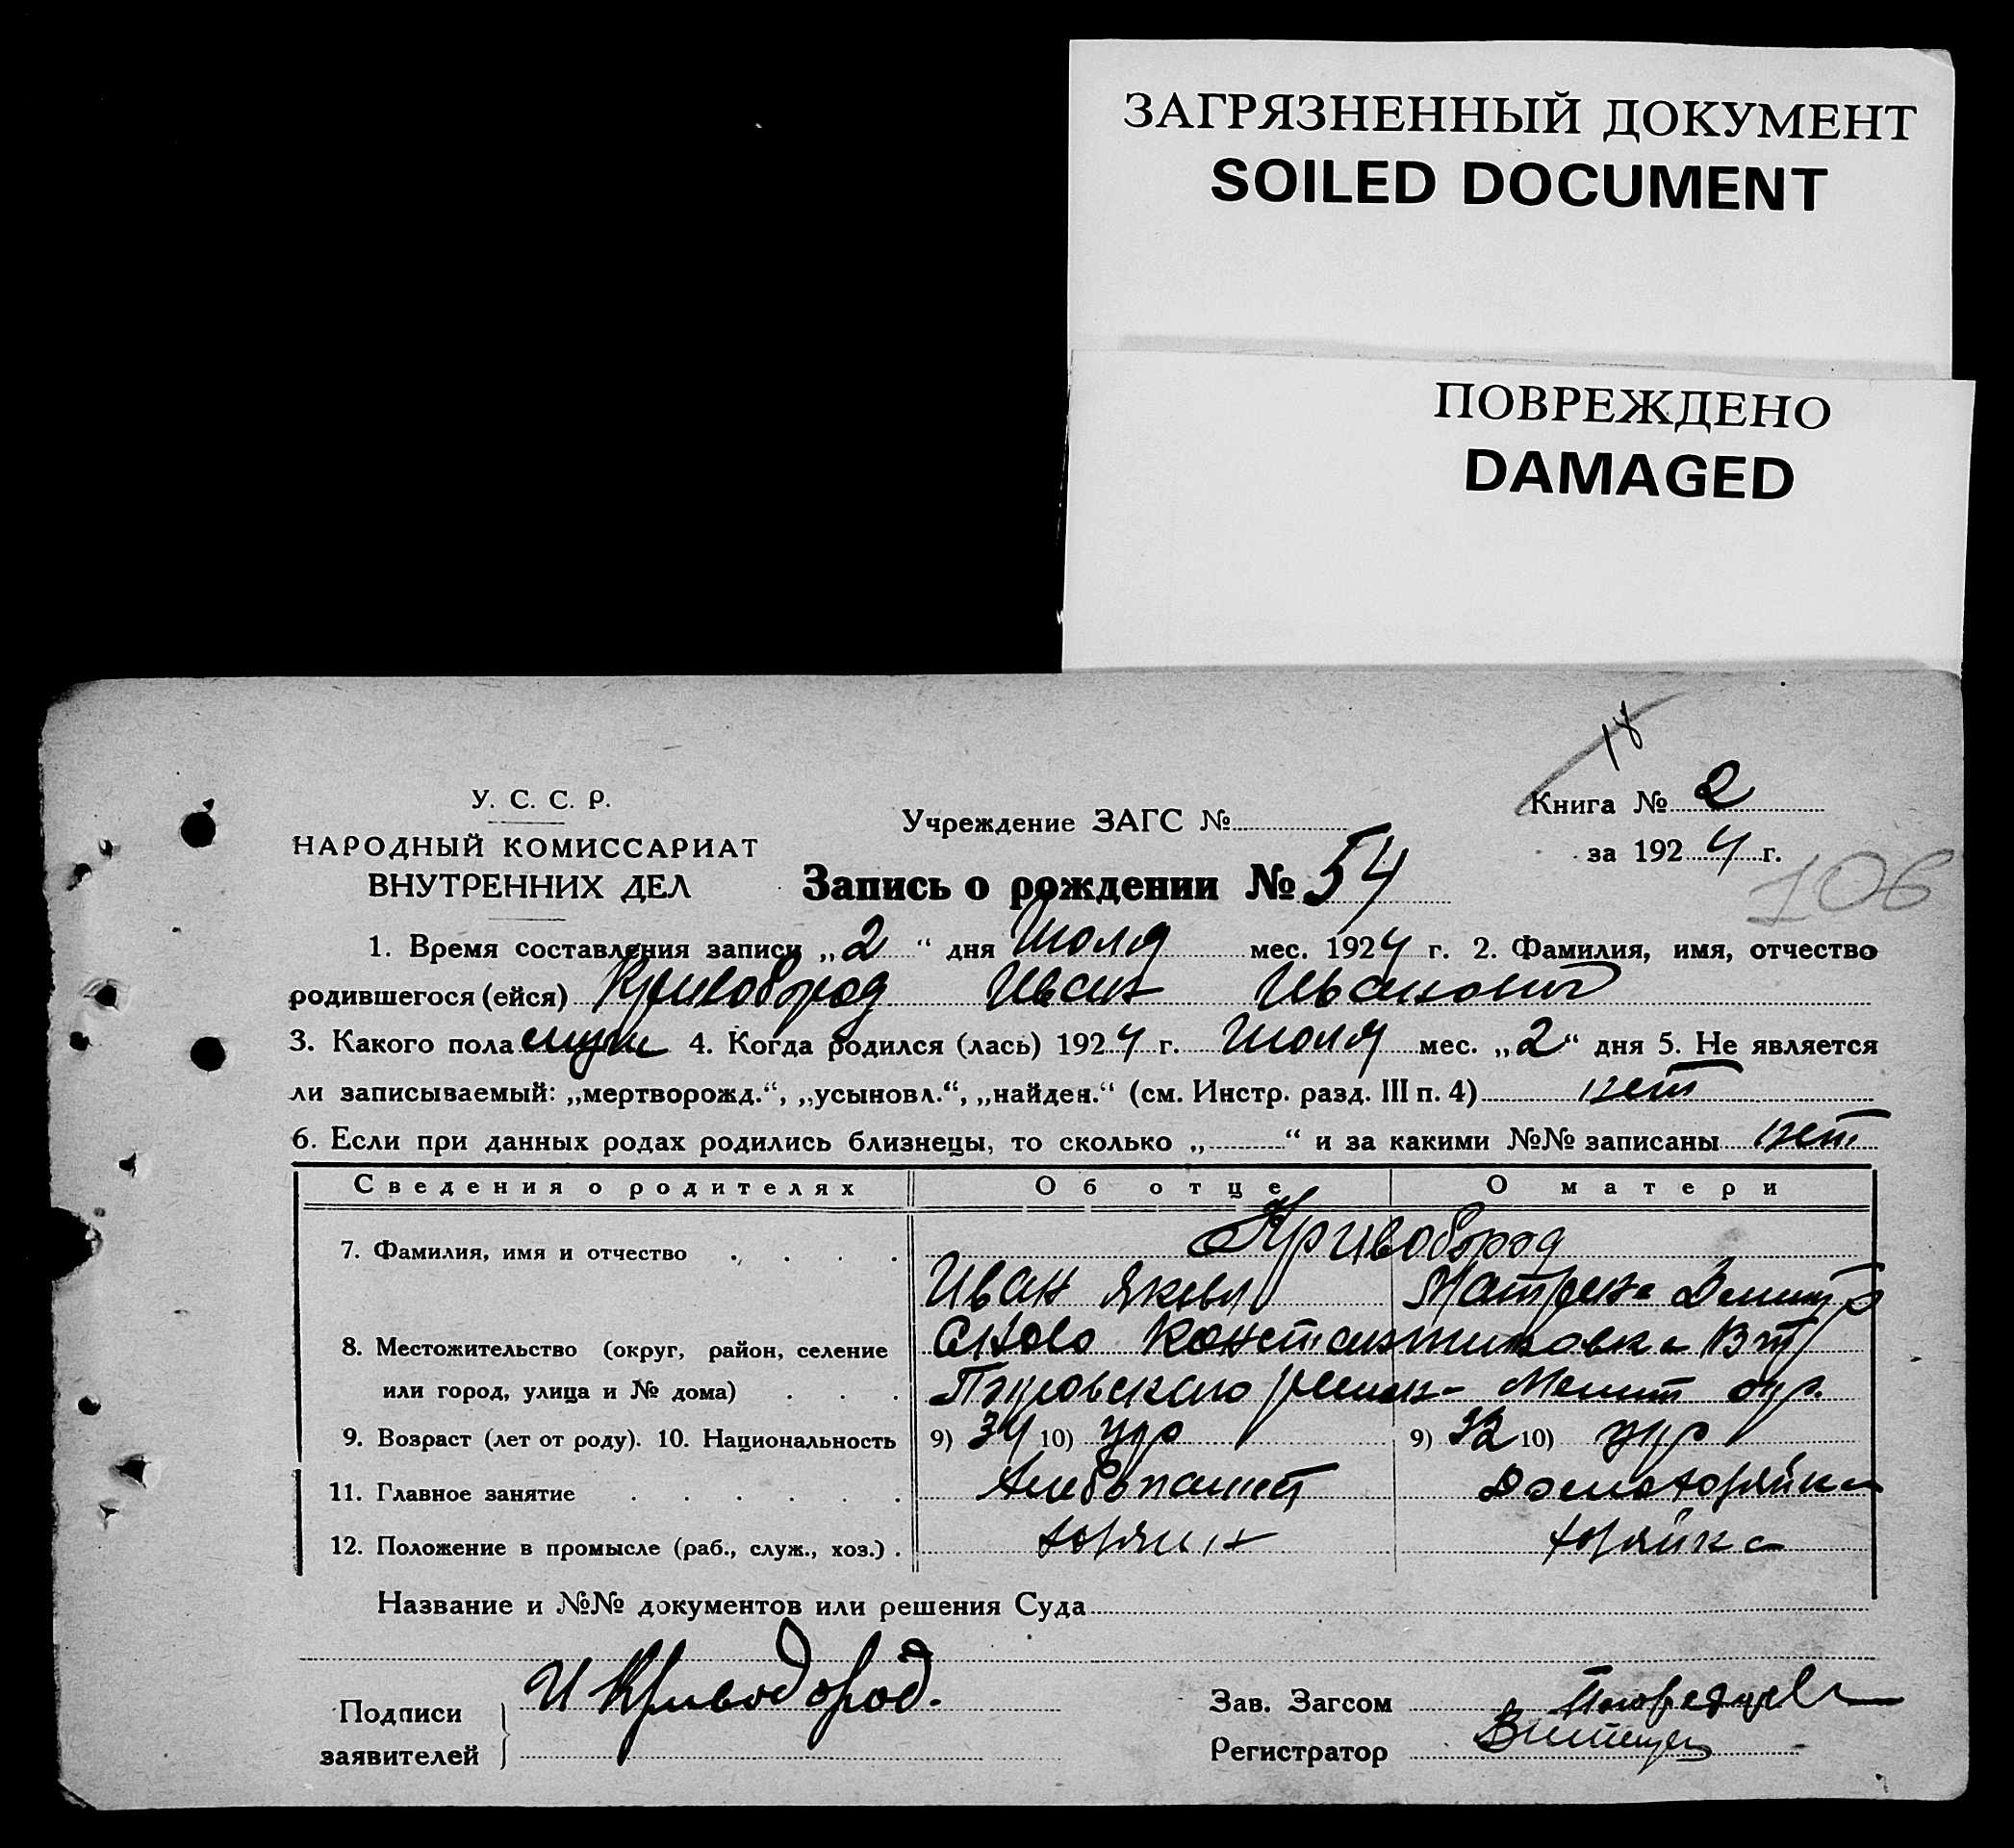 ЗАГРЯЗНЕННЫЙ ДОКУМЕНТ
SOILED DOCUMENT
ПОВРЕЖДЕНО
DAMAGED
18
У. С. С. Р.
НАРОДНЫЙ КОМИССАРИАТ
ВНУТРЕННИХ ДЕЛ
Учреждение ЗАГС №
Книга № 2
за 1924 г.
106
Запись о рождении № 54
1. Время составления записи „2“ дня Июля мес. 1924 г. 2. Фамилия, имя, отчество
родившегося (ейся) Кривобород Иван Иванович
3. Какого пола муж 4. Когда родился (лась) 1924 г. Июля мес. „2“ дня 5. Не является
ли записываемый: „мертворожд.“, „усыновл.“, „найден.“ (см. Инстр. разд. III п. 4) нет
6. Если при данных родах родились близнецы, то сколько „ “ и за какими №№ записаны нет
Сведения о родителях Об отце О матери
7. Фамилия, имя и отчество Кривобород
Иван Яковл Матрена Демит
8. Местожительство (округ, район, селение Константиновка
или город, улица и № дома) Мелит окр.
9. Возраст (лет от роду). 10. Национальность 9) 34 10) укр 9) 32 10) укр
11. Главное занятие Хлебопашет Домохозяйка
12. Положение в промысле (раб., служ., хоз.) хозяин хозяйка
Название и №№ документов или решения Суда
Подписи
заявителей
И Кривобород.
Зав. Загсом
Регистратор